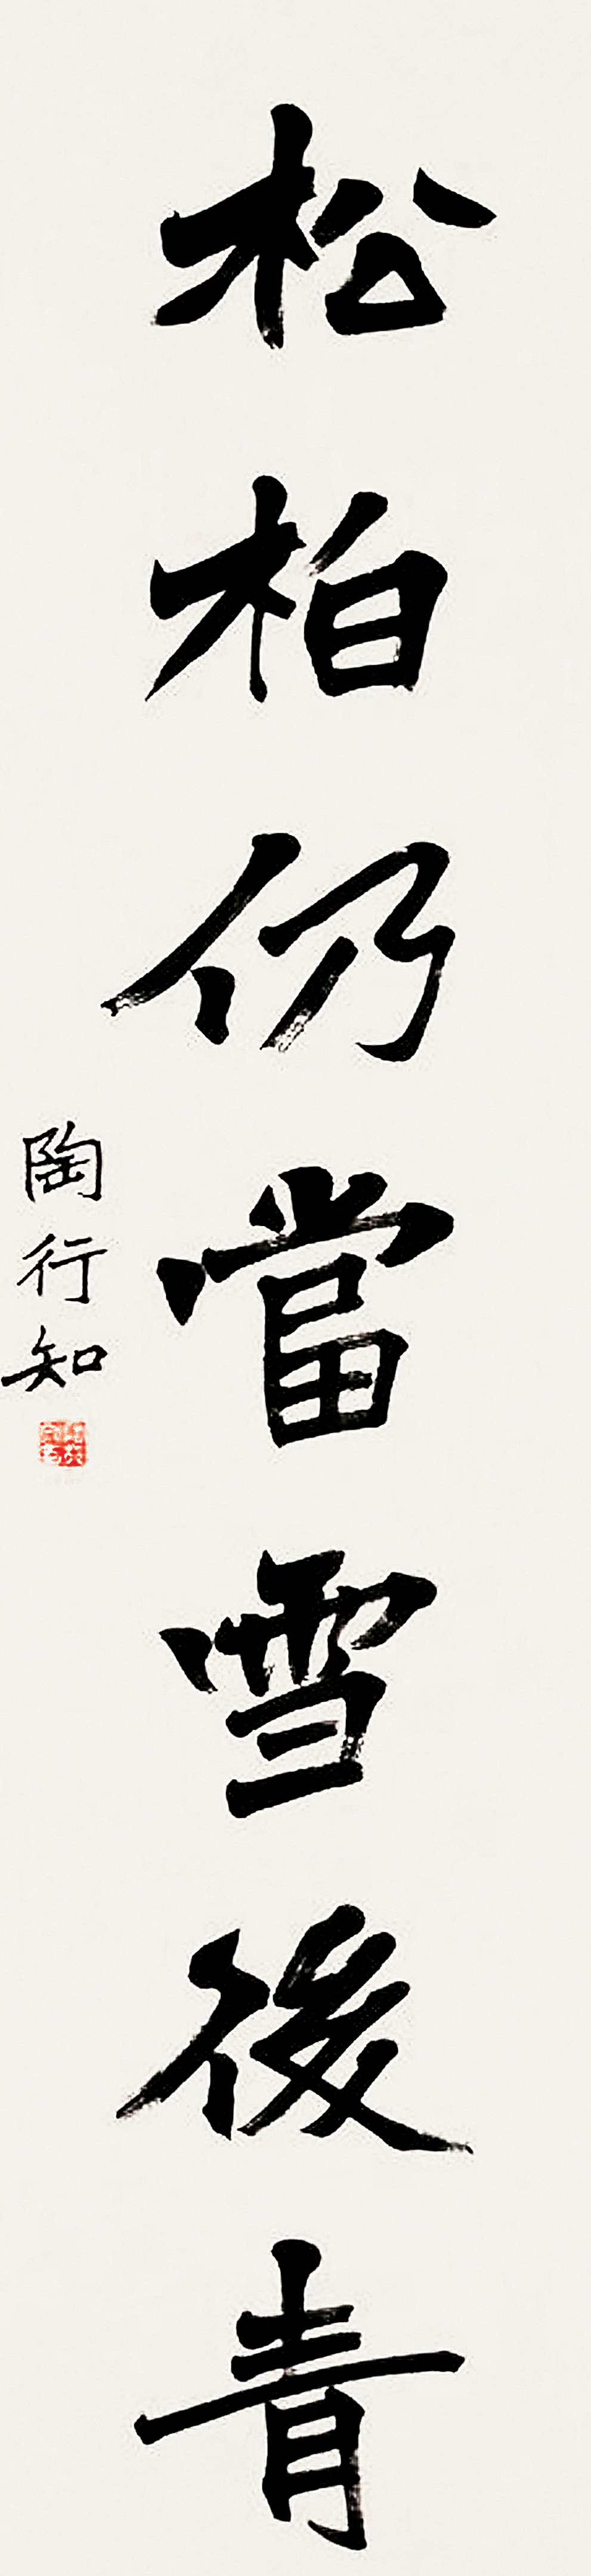 松柏仍當雪後青
陶行知